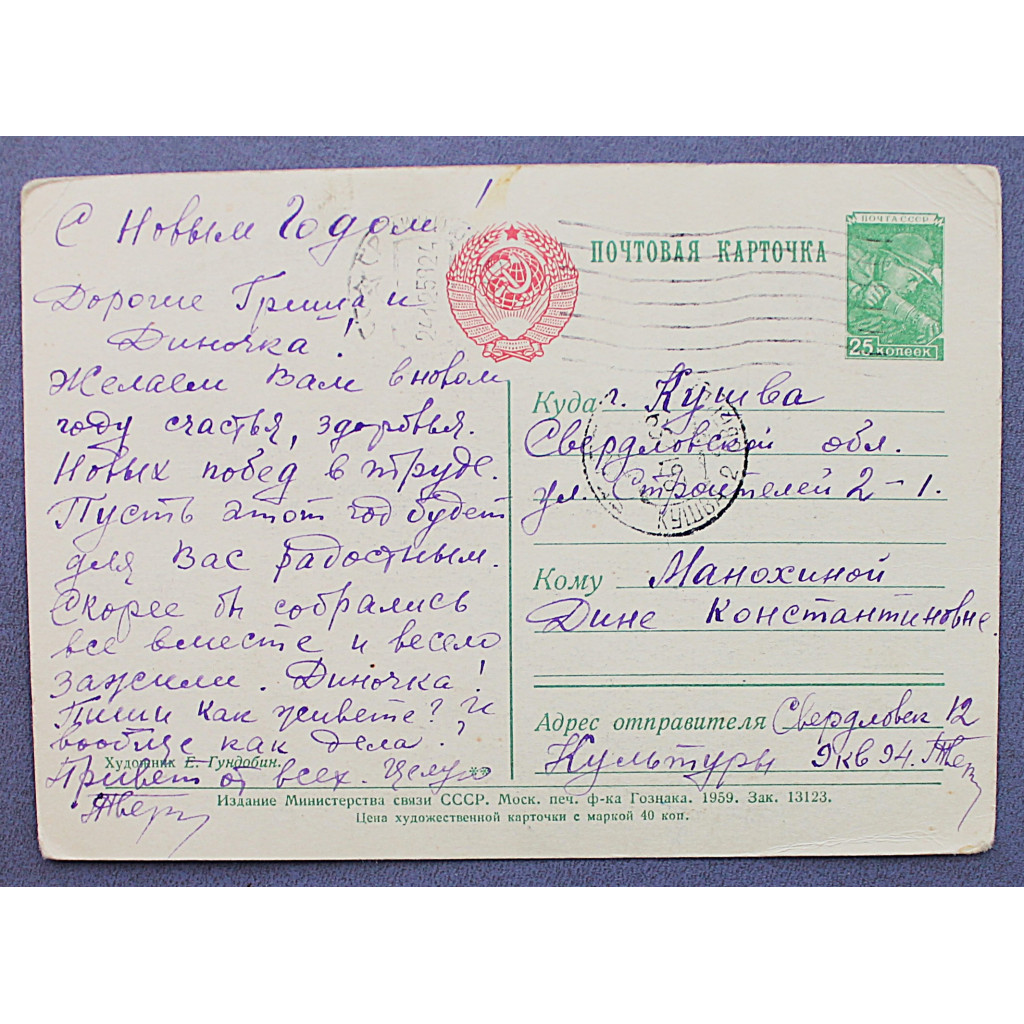 С Новым Годом!
Дорогие Гриша и
Диночка!
Желаем Вам в новом
году счастья, здоровья.
Новых побед в труде.
Пусть этот год будет
для Вас радостным.
Скорее бы собрались
все вместе и весело
зажили. Диночка!
Пиши как живете? И
вообще как дела.
Художник Е. Гундобин.
Привет от всех. Целую
**
ПОЧТОВАЯ КАРТОЧКА
ПОЧТА СССР
25 КОПЕЕК
Куда г. Кушва
Свердловской обл.
ул. Строителей 2-1.
КУШВА 2
Кому Манохиной
Дине Константиновне.
Адрес отправителя Свердловск 12
Культуры 9 кв 94.
Издание Министерства связи СССР. Моск. печ. ф-ка Гознака. 1959. Зак. 13123.
Цена художественной карточки с маркой 40 коп.